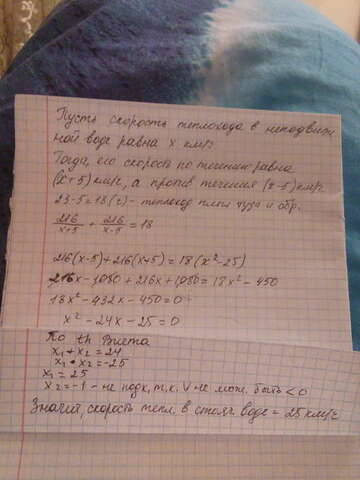 Пусть скорость теплохода в неподвиж
ной воде равна x км/ч
Тогда, его скорость по течению равна
(x+5) км/ч, а против течения (x-5) км/ч
23-5=18 (ч) - теплоход плыл туда и обр.
216/x+5 + 216/x-5 = 18
216(x-5)+216(x+5)=18(x²-25)
216x-1080+216x+1080=18x²-450
18x²-432x-450=0
x²-24x-25=0
По th Виета
x₁+x₂=24
x₁•x₂=-25
x₁=25
x₂=-1 - не подх, т.к. V не мож. быть <0
Значит, скорость тепл. в стояч воде = 25 км/ч